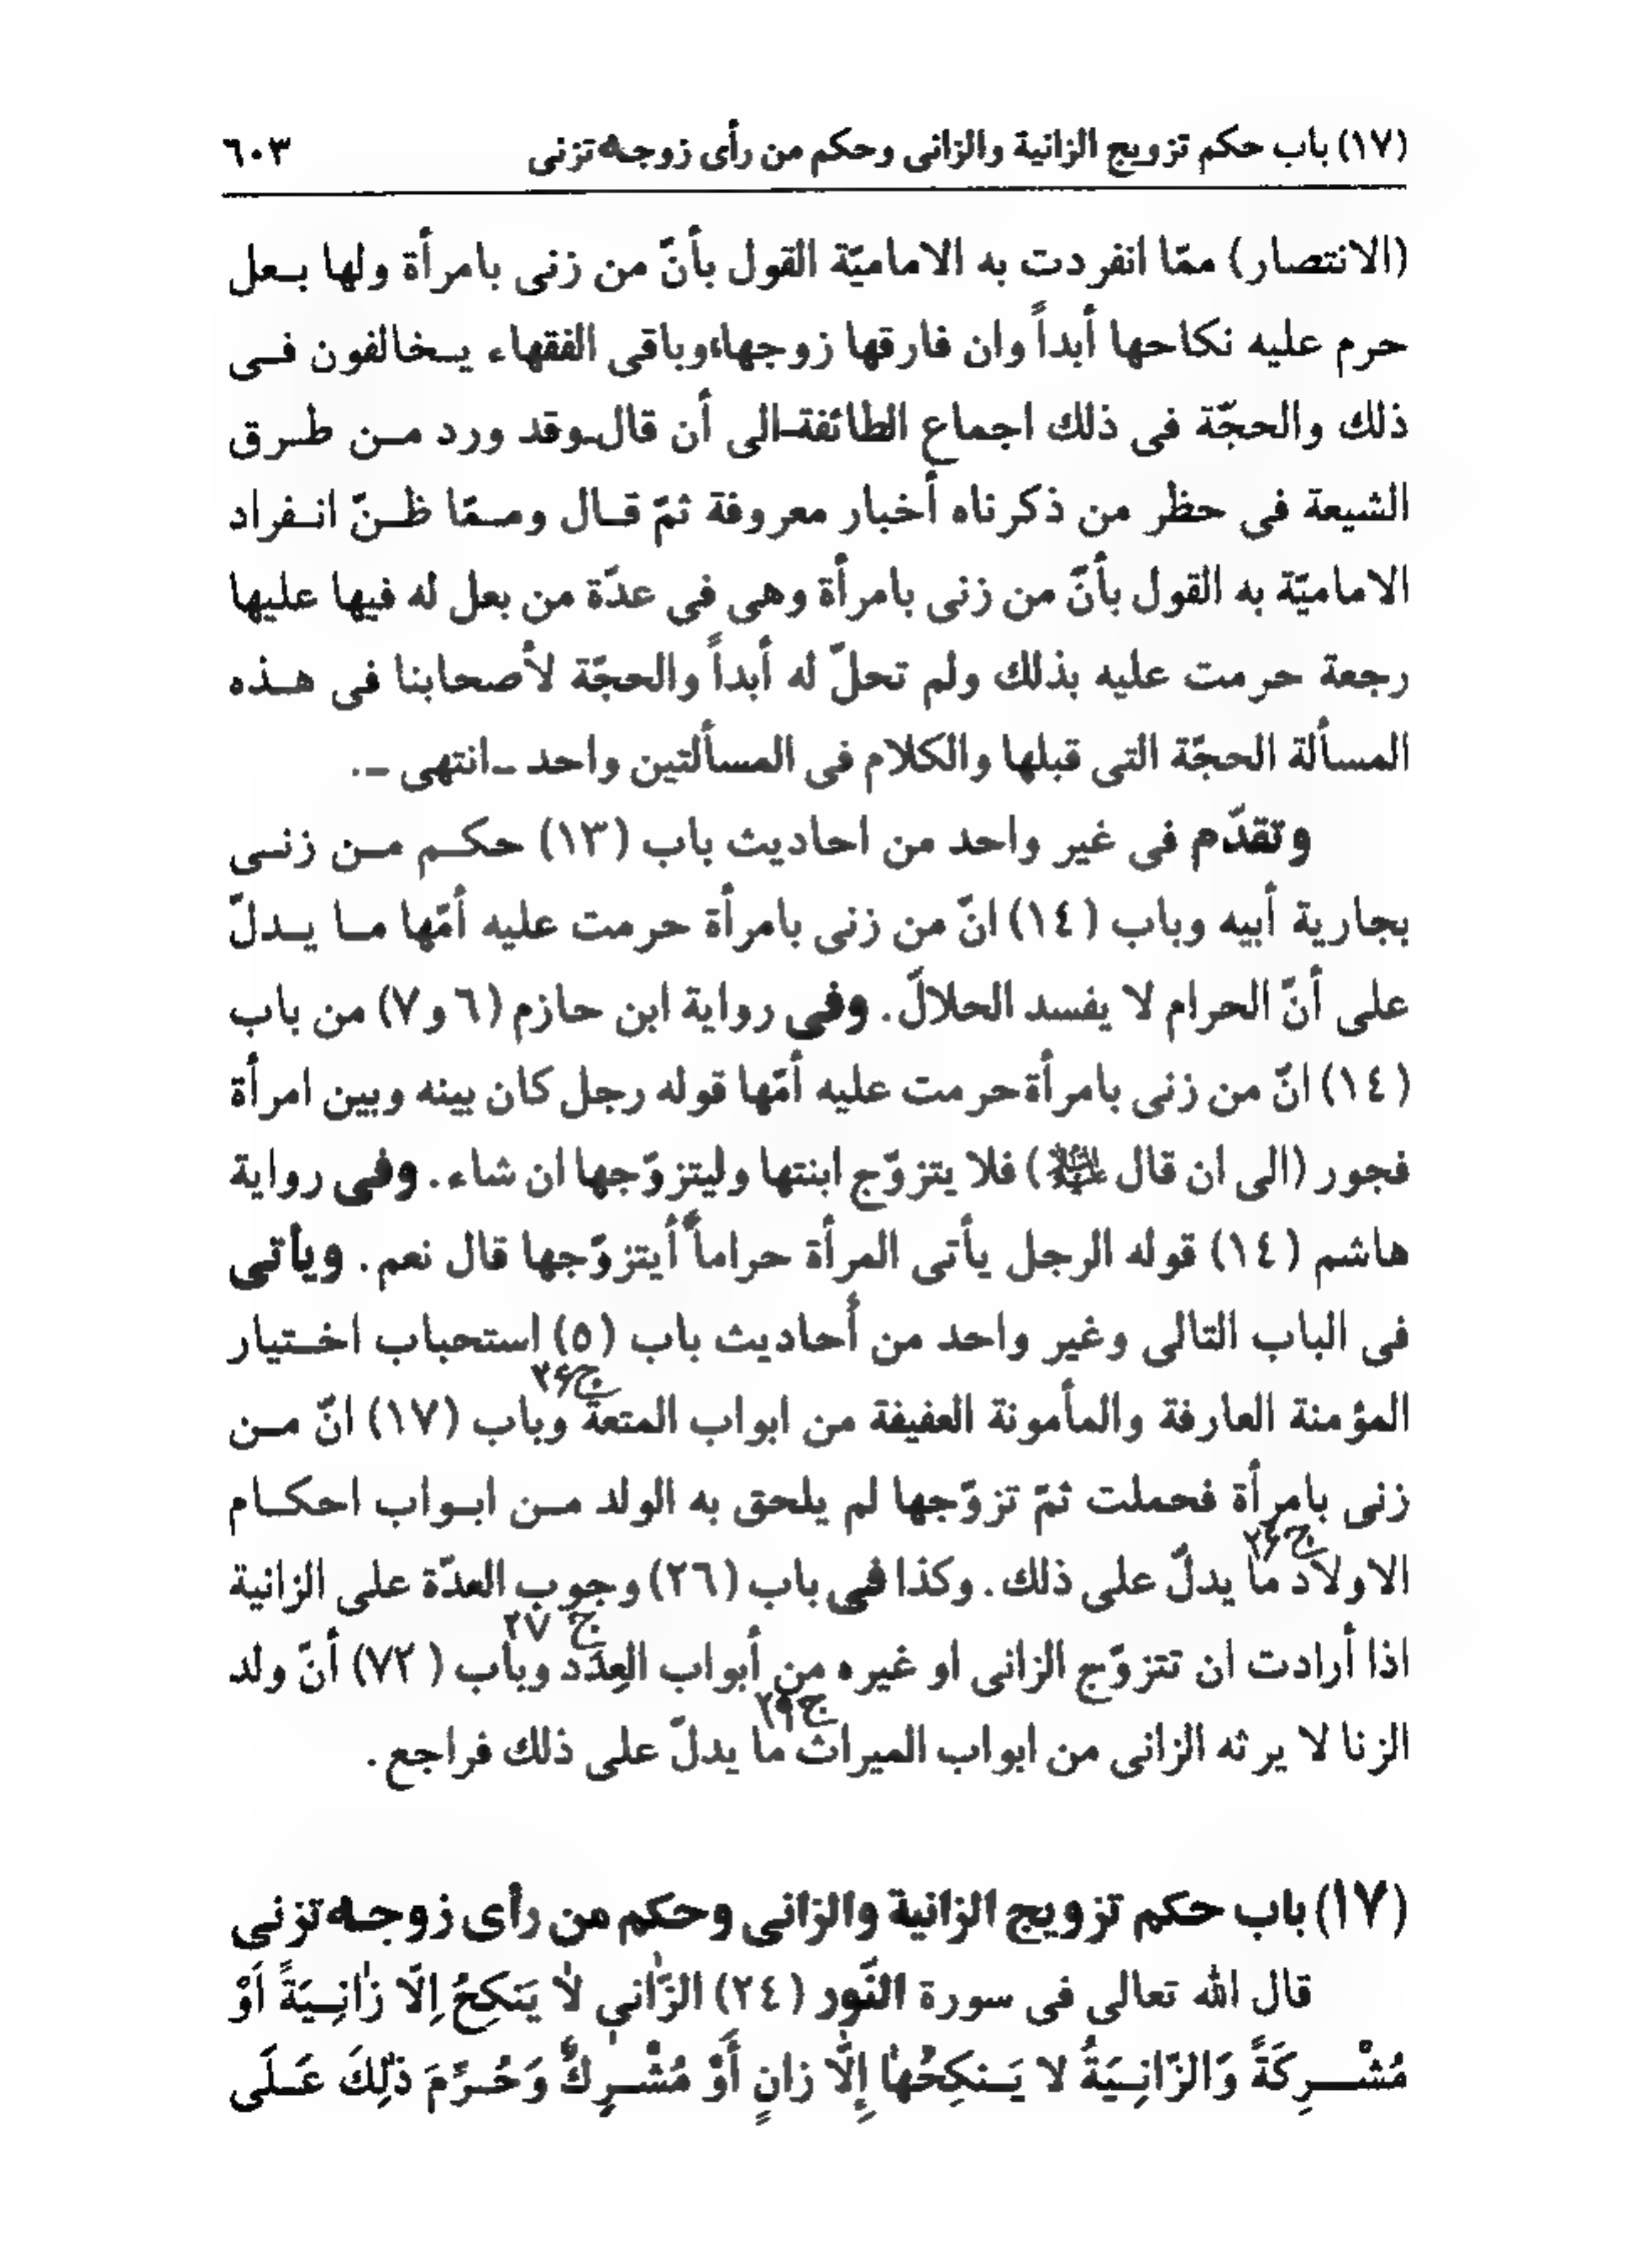 (١٧) باب حكم تزويج الزانية والزانى وحكم من رأى زوجته تزنى ٦٠٣
(الانتصار) ممّا انفردت به الاماميّة القول بأنّ من زنى بامرأة ولها بـعل
حرم عليه نكاحها أبداً وان فارقها زوجها،وباقى الفقهاء يـخالفون فـى
ذلك والحجّة فى ذلك اجماع الطائفةـالى أن قالـوقد ورد مـن طـرق
الشيعة فى حظر من ذكرناه أخبار معروفة ثمّ قـال ومـمّا ظـنّ انـفراد
الاماميّة به القول بأنّ من زنى بامرأة وهى فى عدّة من بعل له فيها عليها
رجعة حرمت عليه بذلك ولم تحلّ له أبداً والحجّة لأصحابنا فى هـذه
المسألة الحجّة التى قبلها والكلام فى المسألتين واحد ـانتهى ـ.
وتقدّم فى غير واحد من احاديث باب (١٣) حكـم مـن زنـى
بجارية أبيه وباب (١٤) انّ من زنى بامرأة حرمت عليه أمّها مـا يـدلّ
على أنّ الحرام لا يفسد الحلالّ. وفى رواية ابن حازم (٦ و٧) من باب
(١٤) انّ من زنى بامرأة حرمت عليه أمّها قوله رجل كان بينه وبين امرأة
فجور (الى ان قال عليه السلام) فلا يتزوّج ابنتها وليتزوّجها ان شاء. وفى رواية
هاشم (١٤) قوله الرجل يأتى المرأة حراماً أيتزوّجها قال نعم. ويأتى
فى الباب التالى وغير واحد من أحاديث باب (٥) استحباب اخـتيار
ج٢۶
المؤمنة العارفة والمأمونة العفيفة من ابواب المتعة وباب (١٧) انّ مـن
زنى بامرأة فحملت ثمّ تزوّجها لم يلحق به الولد مـن ابـواب احكـام
ج٢۶
الاولاد ما يدلّ على ذلك. وكذا فى باب (٢٦) وجوب العدّة على الزانية
ج ٢٧
اذا أرادت ان تتزوّج الزانى او غيره من أبواب العِدَد وباب (٧٢) أنّ ولد
ج٢٩
الزنا لا يرثه الزانى من ابواب الميراث ما يدلّ على ذلك فراجع.
(١٧) باب حكم تزويج الزانية والزانى وحكم من رأى زوجته تزنى
قال الله تعالى فى سورة النّور (٢٤) الزّاني لا يَنكِحُ اِلّا زانِـيَةً اَوْ
مُشْـرِكَةً وَالزّانِـيَةُ لا يَـنكِحُها إِلّا زانٍ أَوْ مُشْـرِكٌ وَحُـرِّمَ ذٰلِكَ عَـلَى